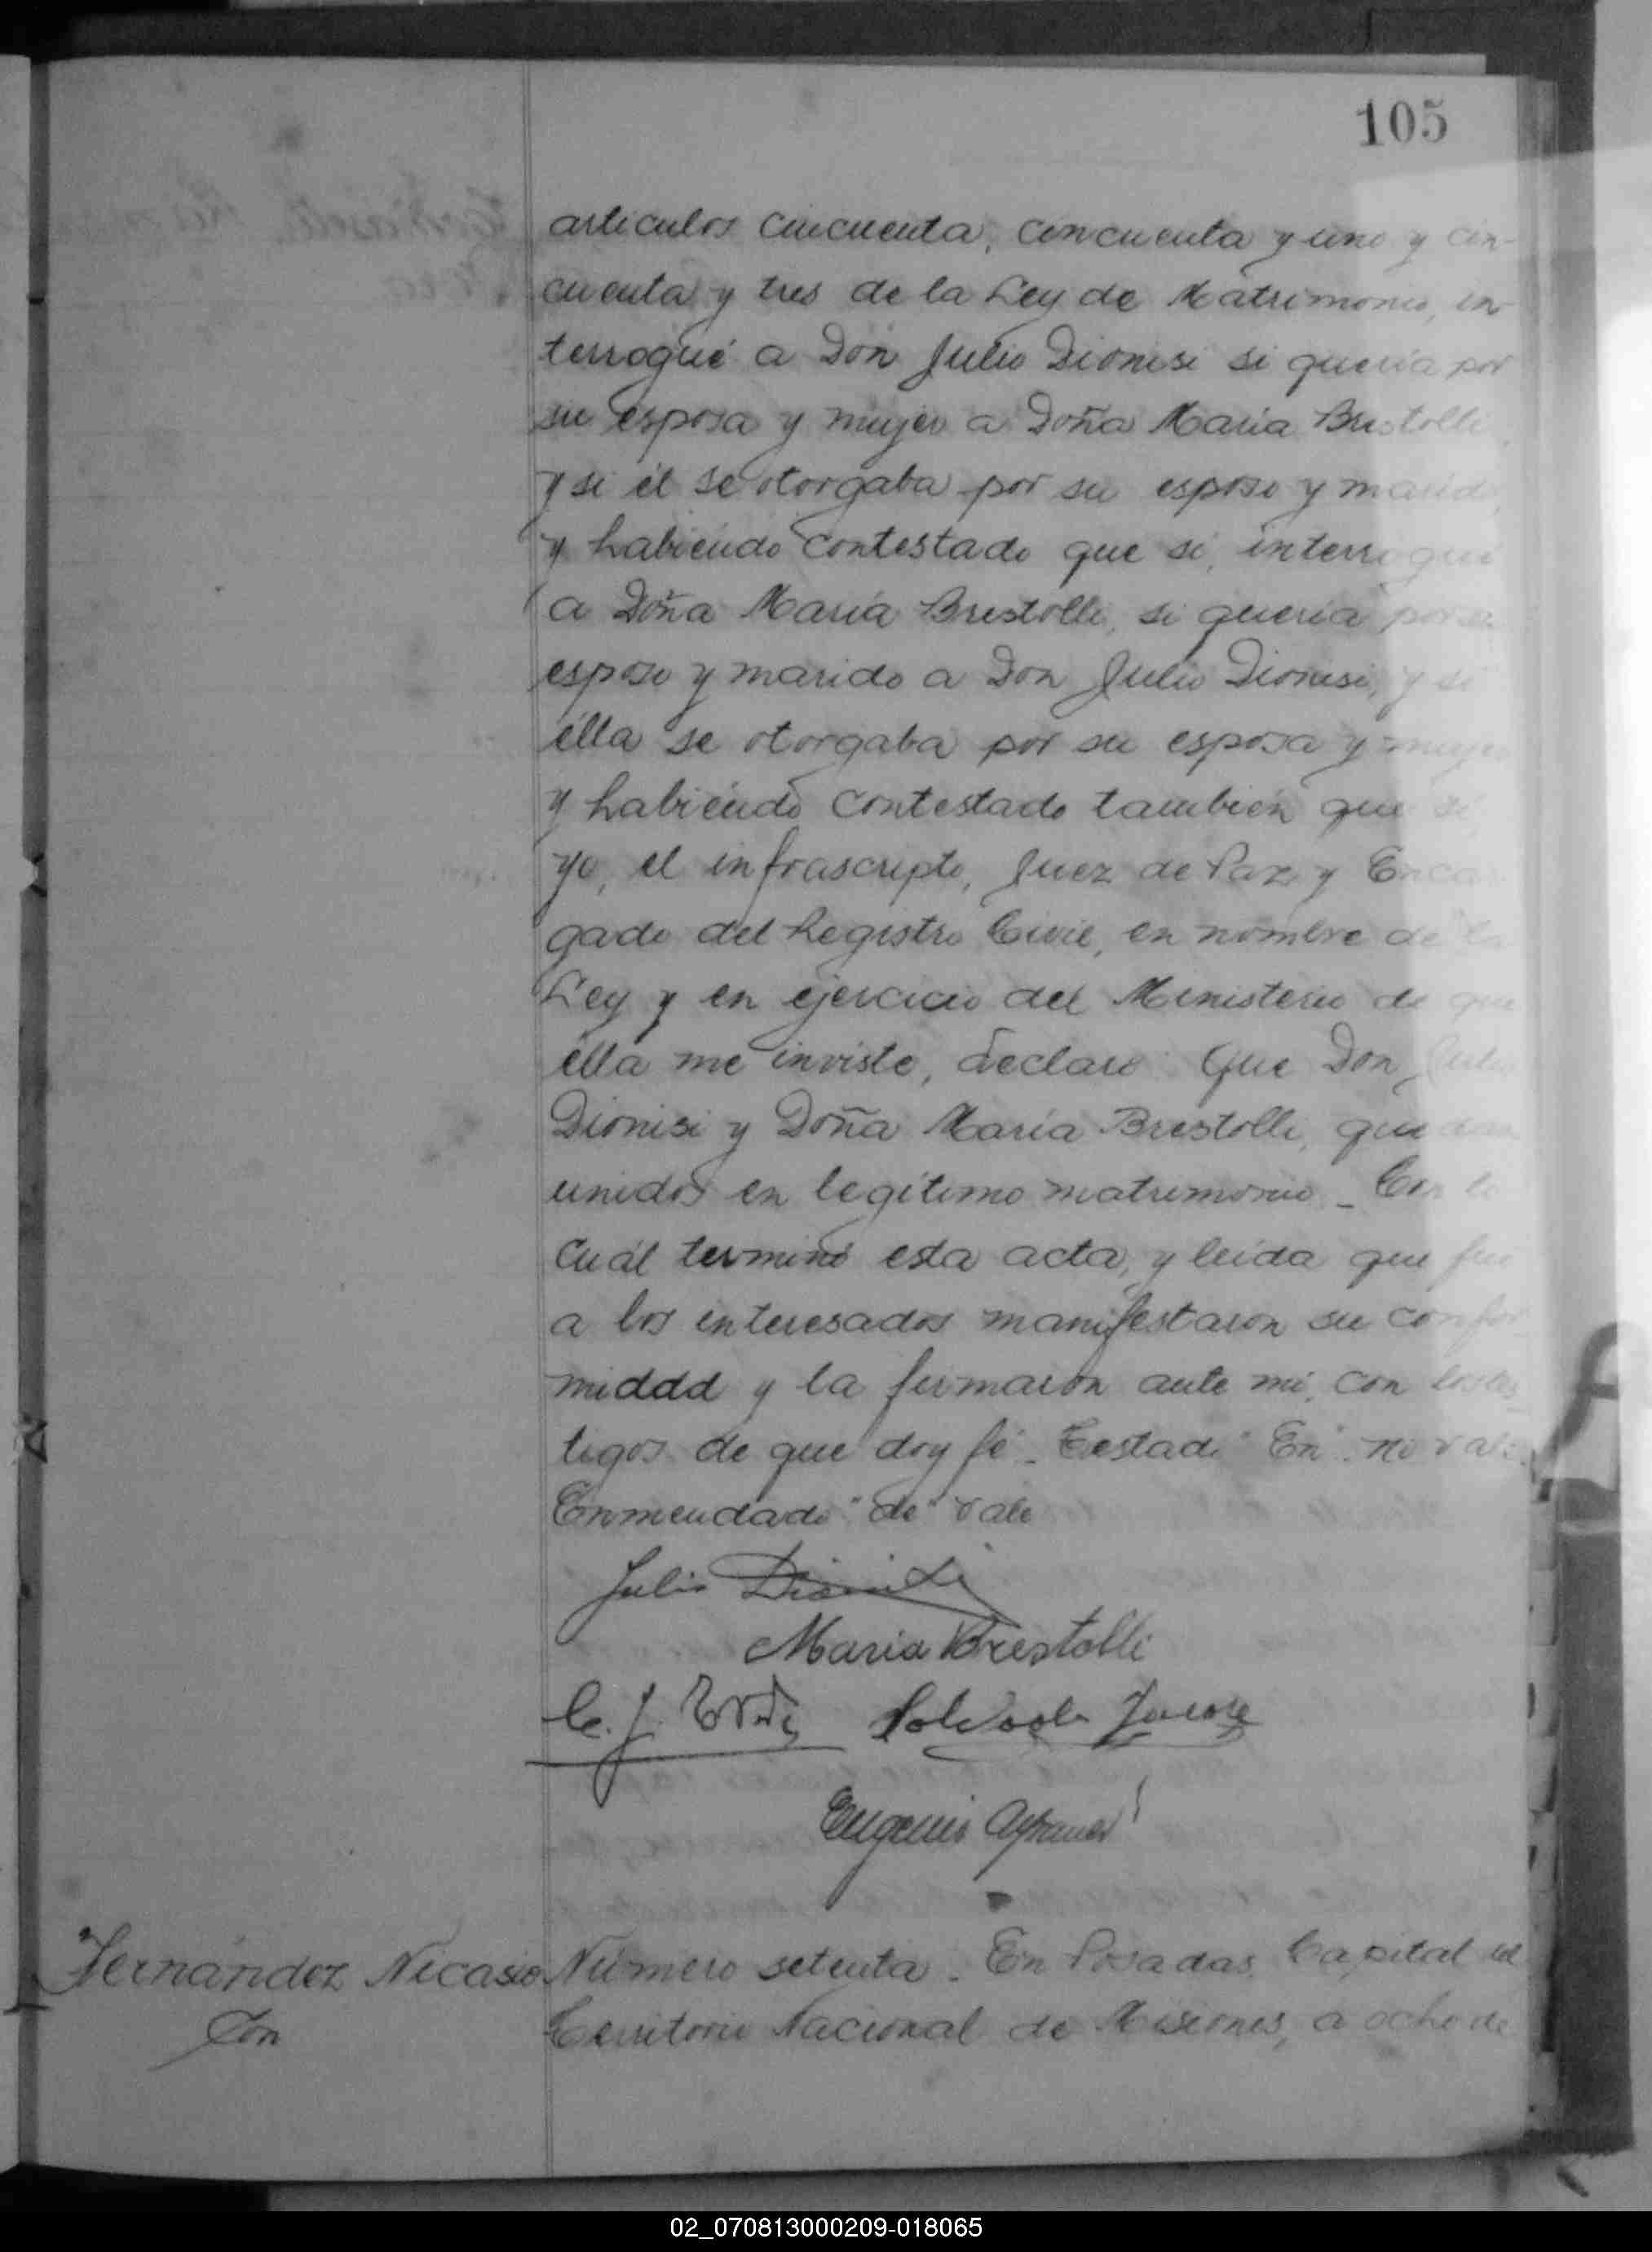 105
articulos cincuenta, cincuenta y uno y cin-
cuenta y tres de la Ley de Matrimonio, in-
terrogué a Don Julio Dionisi si quería por
su esposa y mujer a Doña María Brestolli
y si él se otorgaba por su esposo y marido
y habiendo contestado que si, interrogué
a Doña María Brestolli, si quería por
esposo y marido a Don Julio Dionisi, y si
élla se otorgaba por su esposa y mujer
y habiendo contestado también que si
yo, el infrascripto, Juez de Paz y Encar
gado del Registro Civil, en nombre de la
Ley y en ejercicio del Ministerio de que
élla me inviste, declaro: Que Don Julio
Dionisi y Doña María Brestolli, quedan
unidos en legítimo matrimonio _ Con lo
cuál terminó esta acta, y leida que fué
a los interesados manifestaron su confor
middd y la firmaron ante mi, con los tes
tigos de que doy fé _ Testado "En" no vale.
Enmendado "de" vale
Julio Dionisi
Maria Brestolli
C. J.
Eugenio
Fernández Nicasio
Con
Número setenta _ En Posadas, Capital del
Territorio Nacional de Misiones, a ocho de
02_070813000209-018065